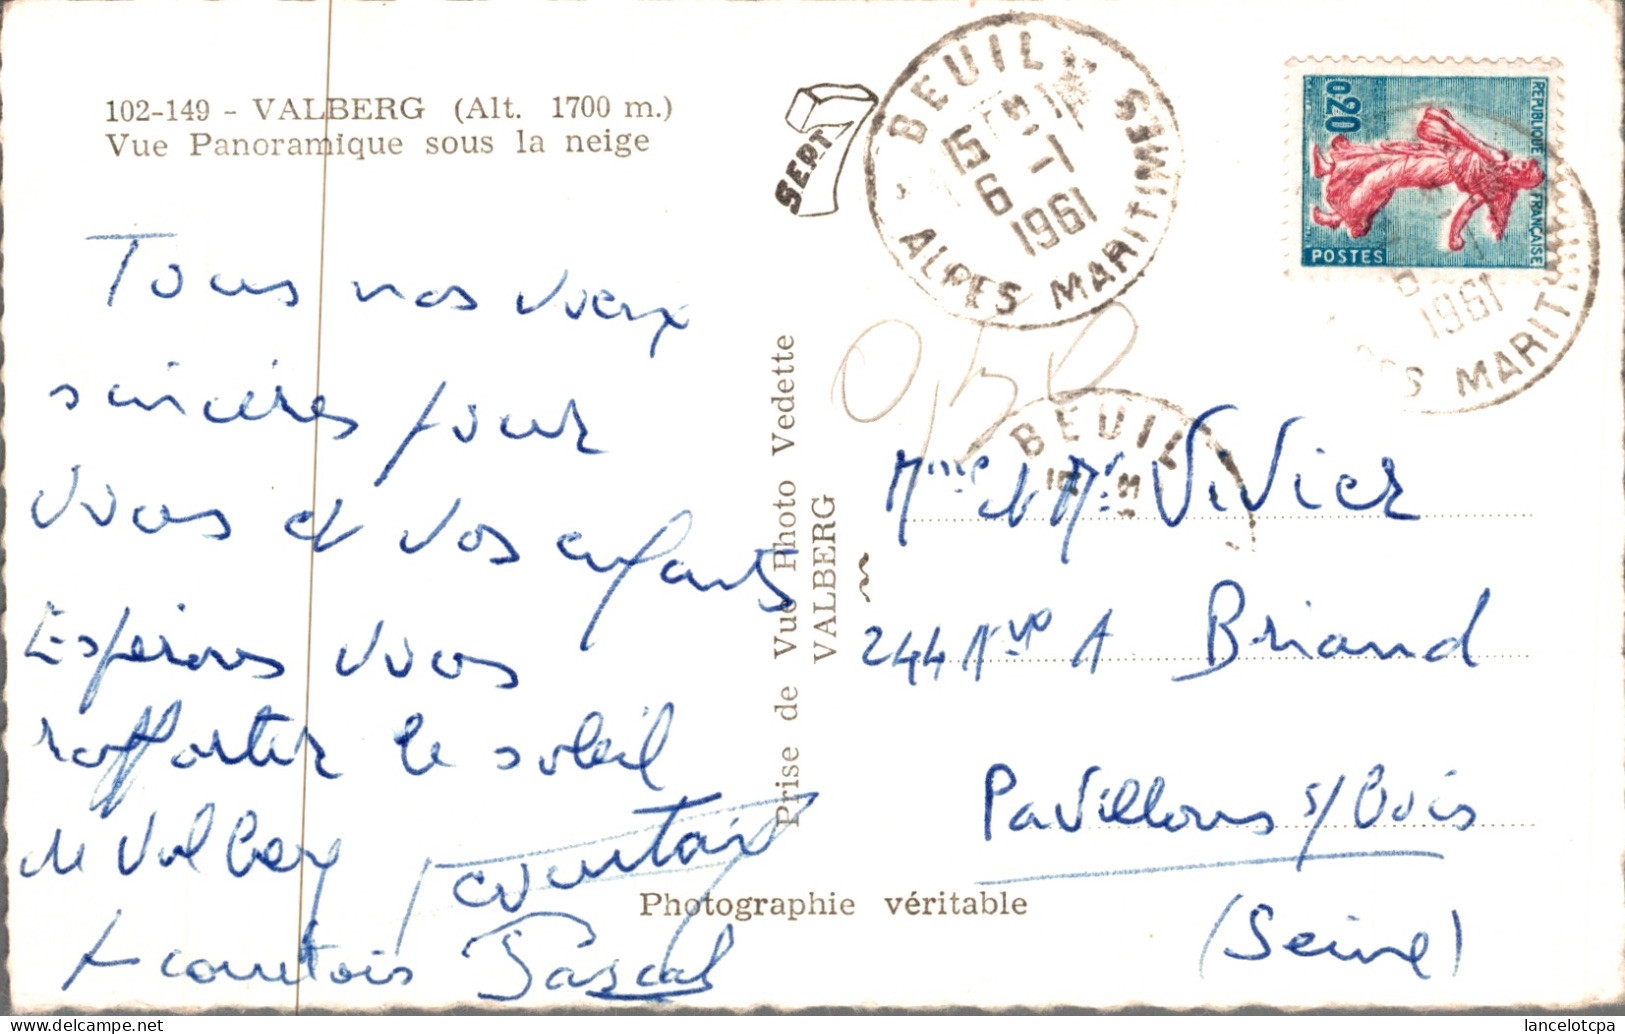 102-149 - VALBERG (Alt. 1700 m.)
Vue Panoramique sous la neige
SEPT
BEUIL
ALPES MARITIMES
15
6 -1
1961
REPUBLIQUE FRANÇAISE
0,20
POSTES
1961
MARITIM
Tous nos voeux
sincères pour
vous et vos enfants
Espérons vous
rapporter le soleil
de Valberg
F Courtois Pascal
Prise de Vue Photo Vedette
VALBERG
Photographie véritable
BEUIL
Mme et Mr Vivier
244 Ave A Briand
Pavillons s/ Bois
(Seine)
delcampe.net
lancelotcpa